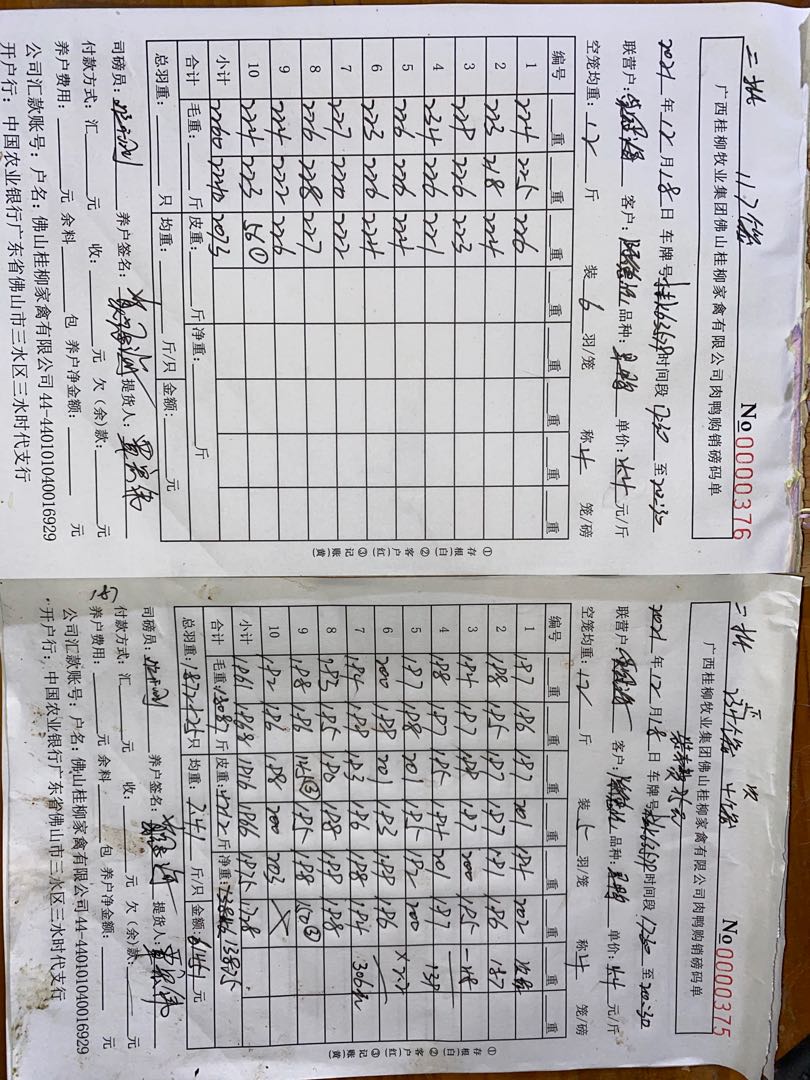 二批 117笼
广西桂柳牧业集团佛山桂柳家禽有限公司肉鸭购销磅码单
No 0000376
2021 年 12 月 18 日 车牌号 时间段 17:30 至 20:30
联营户: 客户: 品种: 单价: 4.4 元/斤
空笼均重: 12 斤 装 6 羽/笼 称 4 笼/磅
编号 重 重 重 重 重 重 重
1 224 225 226
2 223 218 224
3 228 226 223
4 234 226 221
5 226 226 224
6 223 226 224
7 227 220 222
8 226 228 227
9 224 222 226
10 224 223 56①
小计 2260 2240 2073
合计 毛重: 斤 皮重: 斤 净重: 斤
总羽重: 只 均重: 斤/只 金额: 元
司磅员: 养户签名: 提货人:
付款方式: 汇 元 收: 元 欠(余)款: 元
养户费用: 元 余料 包 养户净金额: 元
公司汇款账号: 户名: 佛山桂柳家禽有限公司 44-440101040016929
开户行: 中国农业银行广东省佛山市三水区三水时代支行
①存根(白) ②客户(红) ③记账(黄)
二批 正 234笼 次 4笼
广西桂柳牧业集团佛山桂柳家禽有限公司肉鸭购销磅码单
No 0000375
2021 年 12 月 18 日 车牌号 时间段 17:30 至 20:30
联营户: 客户: 品种: 单价: 4.4 元/斤
空笼均重: 12 斤 装 5 羽/笼 称 4 笼/磅
编号 重 重 重 重 重 重 重
1 187 186 187 201 184 202
2 188 185 187 187 181 186 187
3 184 187 188 187 200 185 -48
4 188 187 185 184 201 187 139
5 187 188 201 185 182 200 ×2.2
6 200 188 201 183 188 186
7 184 188 183 186 188 184 306元
8 183 185 180 188 188 188
9 188 186 145③ 185 188 150③
10 182 186 188 200 203 ×
小计 1861 1868 1816 1866 1875
合计 毛重: 斤 皮重: 4212 斤 净重: 斤
总羽重: 只 均重: 7.41 斤/只 金额: 元
司磅员: 养户签名: 提货人:
付款方式: 汇 元 收: 元 欠(余)款: 元
养户费用: 元 余料 包 养户净金额: 元
公司汇款账号: 户名: 佛山桂柳家禽有限公司 44-440101040016929
开户行: 中国农业银行广东省佛山市三水区三水时代支行
①存根(白) ②客户(红) ③记账(黄)
187